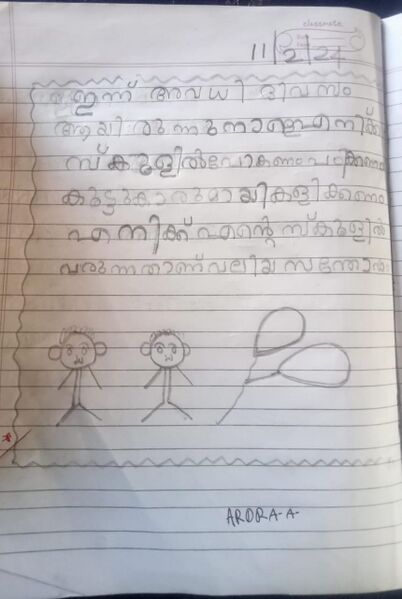 classmate
11/2/24
ഇന്ന് അവധി ദിവസം
ആയിരുന്നു നാളെ എനിക്ക്
സ്കൂളിൽ പോകണം പഠിക്കണം
കൂട്ടുകാരുമായി കളിക്കണം
എനിക്ക് എന്റെ സ്കൂളിൽ
വരുന്നതാണ് വലിയ സന്തോഷം
ARDRA-A-